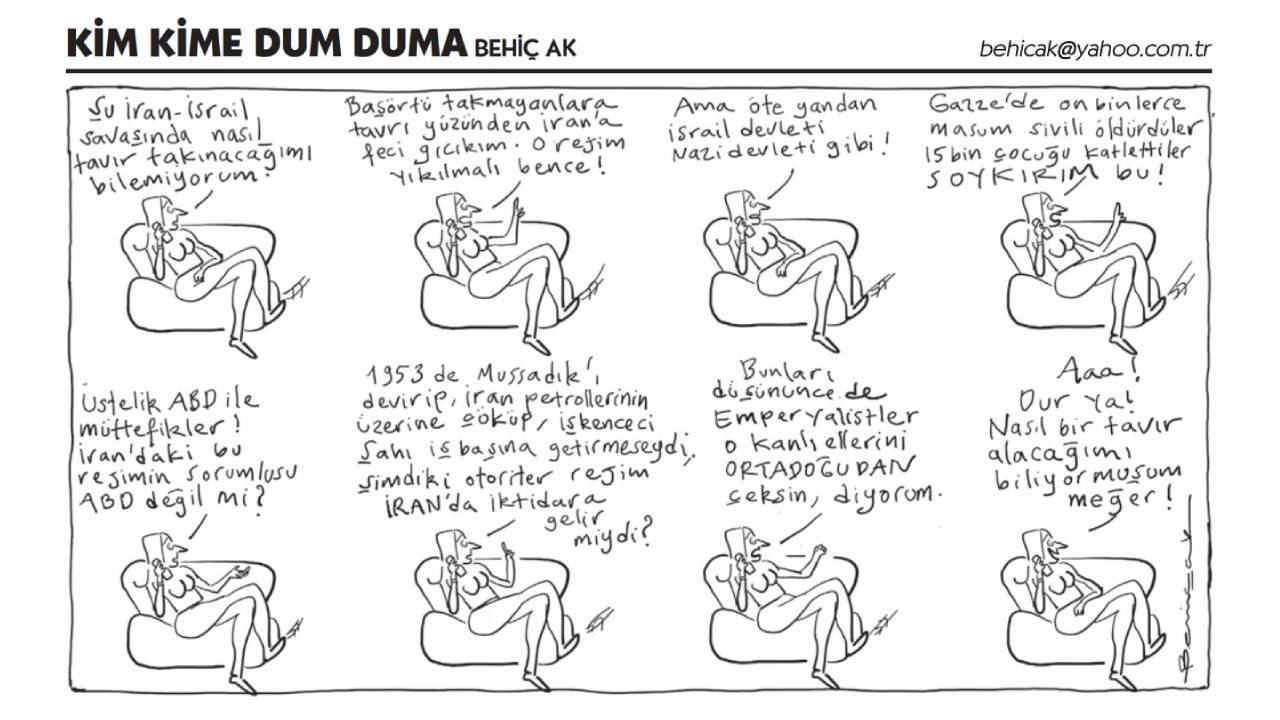 KİM KİME DUM DUMA BEHİÇ AK
behicak@yahoo.com.tr
Şu İran-İsrail
savaşında nasıl
tavır takınacağımı
bilemiyorum!
Başörtü takmayanlara
tavrı yüzünden İran'a
feci gıcıkım. O rejim
yıkılmalı bence!
Ama öte yandan
İsrail devleti
Nazi devleti gibi!
Gazze'de on binlerce
masum sivili öldürdüler
15 bin çocuğu katlettiler
SOYKIRIM bu!
Üstelik ABD ile
müttefikler!
İran'daki bu
rejimin sorumlusu
ABD değil mi?
1953 de Mussadık'ı
devirip, İran petrollerinin
üzerine çöküp, işkenceci
Şahı iş başına getirmeseydi,
şimdiki otoriter rejim
İRAN'da iktidara
gelir
miydi?
Bunları
düşününce de
Emperyalistler
o kanlı ellerini
ORTADOĞUDAN
çeksin, diyorum.
Aaa!
Dur ya!
Nasıl bir tavır
alacağımı
biliyormuşum
meğer!
Behiç ak